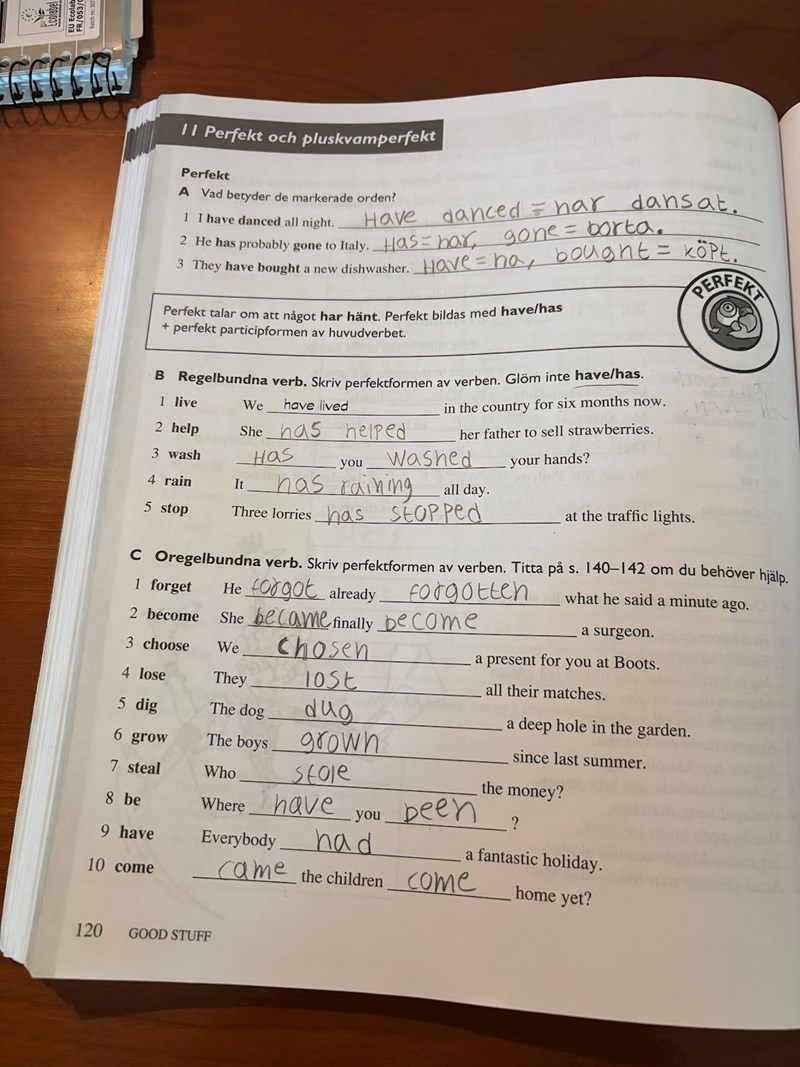 Ecolabel
EU Ecolabel
FR/053/0
11 Perfekt och pluskvamperfekt
Perfekt
A Vad betyder de markerade orden?
1 I have danced all night. Have danced = har dansat.
2 He has probably gone to Italy. Has = har, gone = borta.
3 They have bought a new dishwasher. Have = ha, bought = köpt.
PERFEKT
Perfekt talar om att något har hänt. Perfekt bildas med have/has
+ perfekt participformen av huvudverbet.
B Regelbundna verb. Skriv perfektformen av verben. Glöm inte have/has.
1 live We have lived in the country for six months now.
2 help She has helped her father to sell strawberries.
3 wash Has you washed your hands?
4 rain It has raining all day.
5 stop Three lorries has stopped at the traffic lights.
C Oregelbundna verb. Skriv perfektformen av verben. Titta på s. 140–142 om du behöver hjälp.
1 forget He forgot already forgotten what he said a minute ago.
2 become She became finally become a surgeon.
3 choose We chosen a present for you at Boots.
4 lose They lost all their matches.
5 dig The dog dug a deep hole in the garden.
6 grow The boys grown since last summer.
7 steal Who stole the money?
8 be Where have you been ?
9 have Everybody had a fantastic holiday.
10 come came the children come home yet?
120 GOOD STUFF